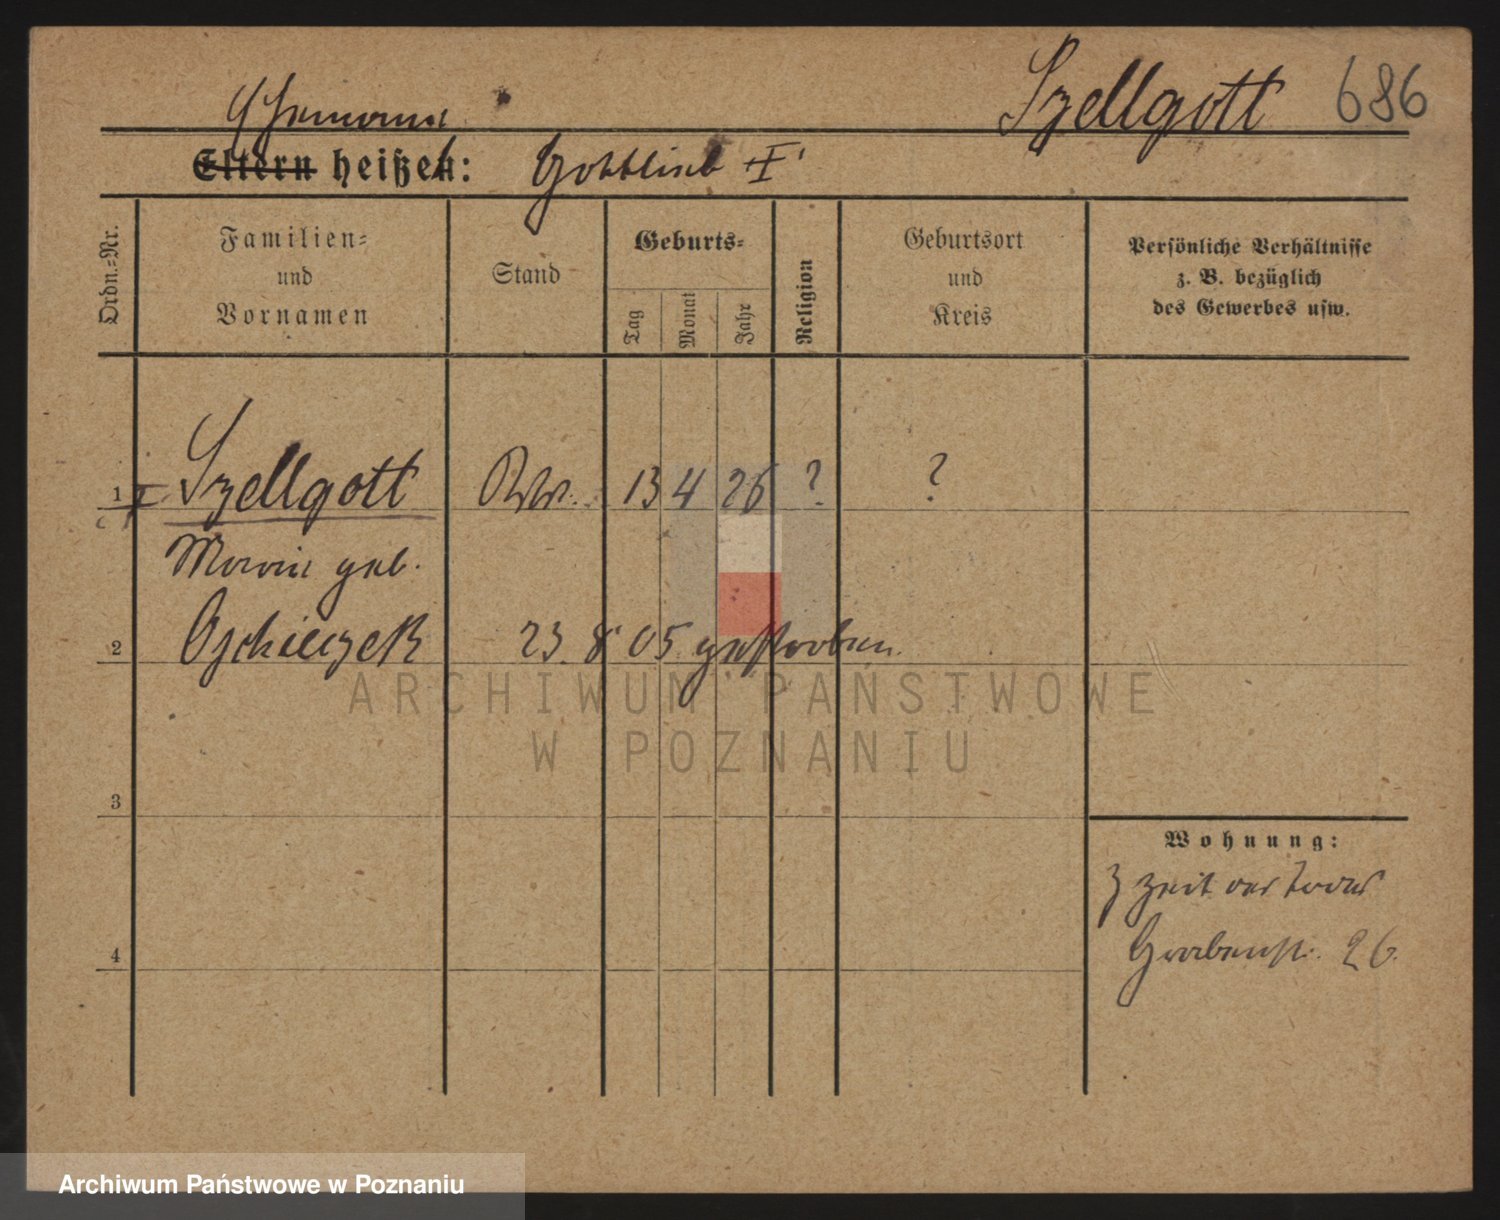 Szellgott 686
Ehemann
Eltern heißen: Gottlieb †
Ordn.=Nr.
Familien=
und
Vornamen
Stand
Geburts=
Tag
Monat
Jahr
Religion
Geburtsort
und
Kreis
Persönliche Verhältnisse
z. B. bezüglich
des Gewerbes usw.
1 † Szellgott Wwe. 13 4 26 ? ?
Marie geb.
2 23. 8 05 gestorben.
ARCHIWUM PAŃSTWOWE
W POZNANIU
3
Wohnung:
z Zeit des Todes
4 Grabenstr. 26.
Archiwum Państwowe w Poznaniu